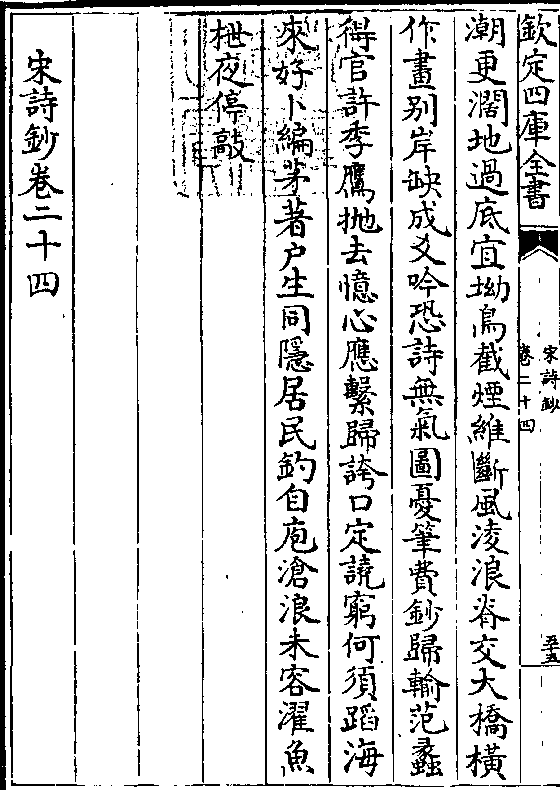 欽定四庫全書
宋詩鈔
卷二十四
五十五
潮更濶地過底宜坳鳥截煙維斷風淩浪脊交大橋橫
作畫别岸缺成爻吟恐詩無氣圖憂筆費鈔歸輸范蠡
得官許季鷹拋去憶心應繫歸誇口定譊窮何須蹈海
來好卜編茅著户生同隱居民釣自庖滄浪未容濯魚
枻夜停敲
宋詩鈔卷二十四